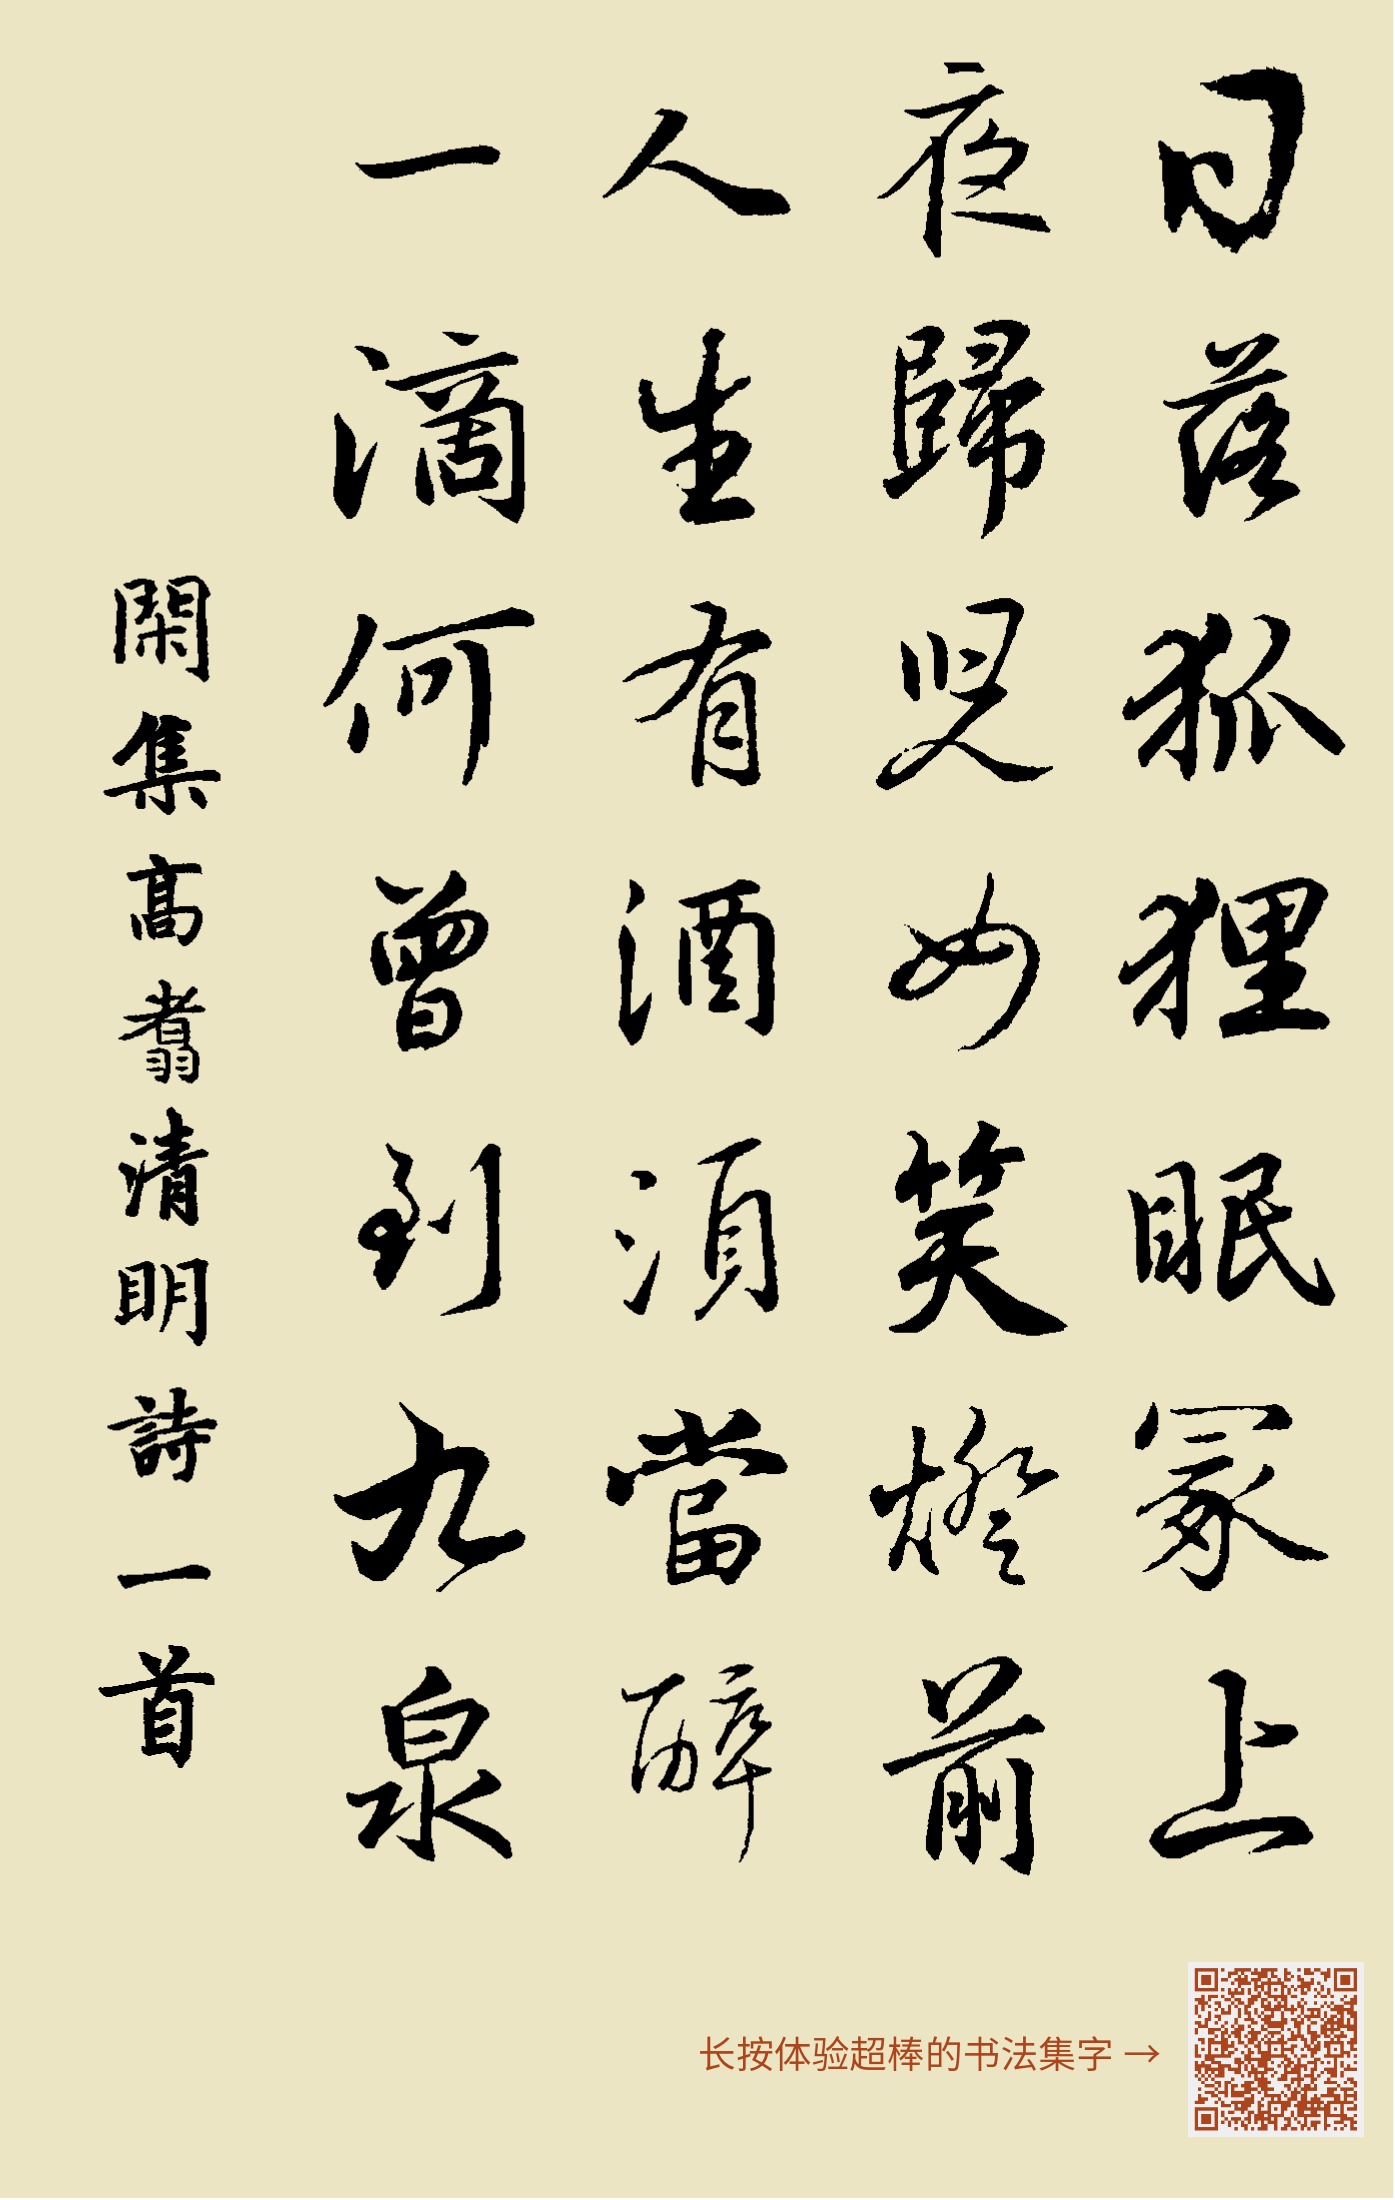 日落狐狸眠冢上
夜歸兒女笑燈前
人生有酒須當醉
一滴何曾到九泉
閑集高翥清明詩一首
长按体验超棒的书法集字 →